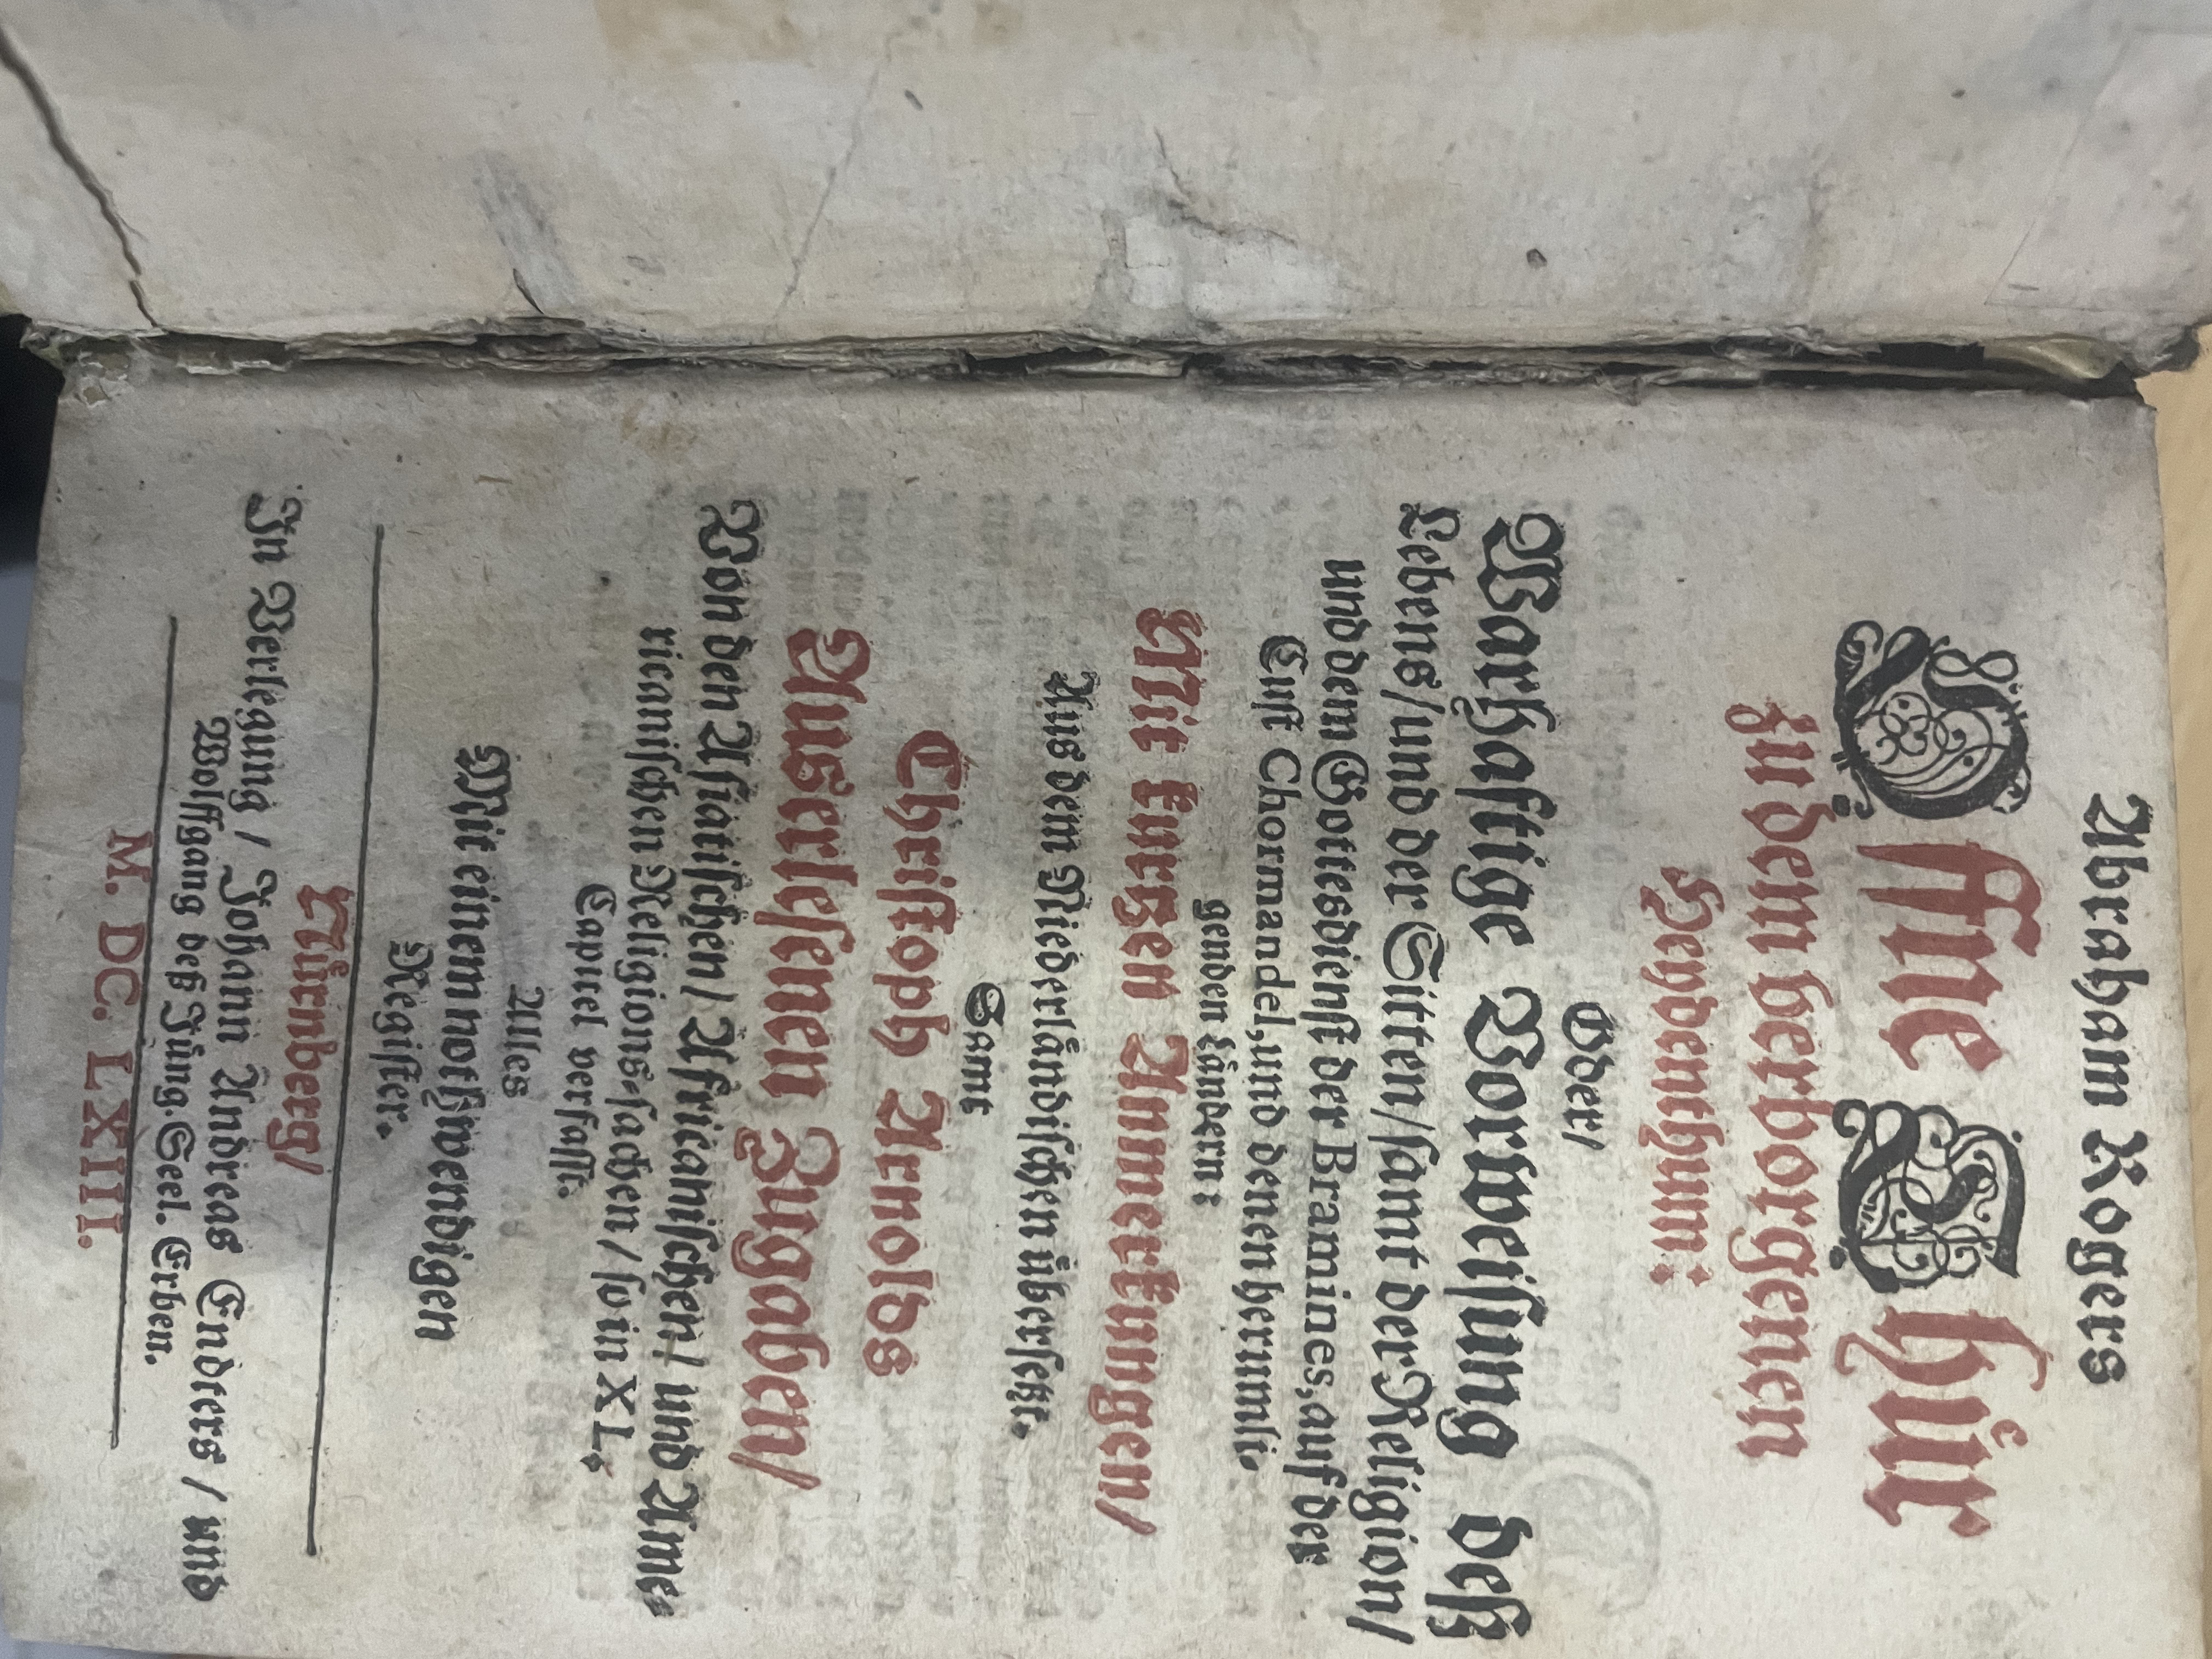 Abraham Rogers
Offne Thür
zu dem verborgenen
Heydenthum:
Oder/
Warhaftige Vorweisung deß
Lebens/ und der Sitten/ samt der Religion/
und dem Gottesdienst der Bramines, auf der
Cust Chormandel, und denen herumli-
genden Ländern:
Mit kurtzen Anmerkungen/
Aus dem Niederländischen übersetzt.
Samt
Christoph Arnolds
Auserlesenen Zugaben/
Von den Asiatischen/ Africanischen/ und Ame-
ricanischen Religions-sachen/ so in XL.
Capitel verfasst.
Alles
Mit einem nothwendigen
Register.
Nürnberg/
In Verlegung/ Johann Andreas Endters/ und
Wolffgang deß Jüng. Seel. Erben.
M. DC. LXIII.